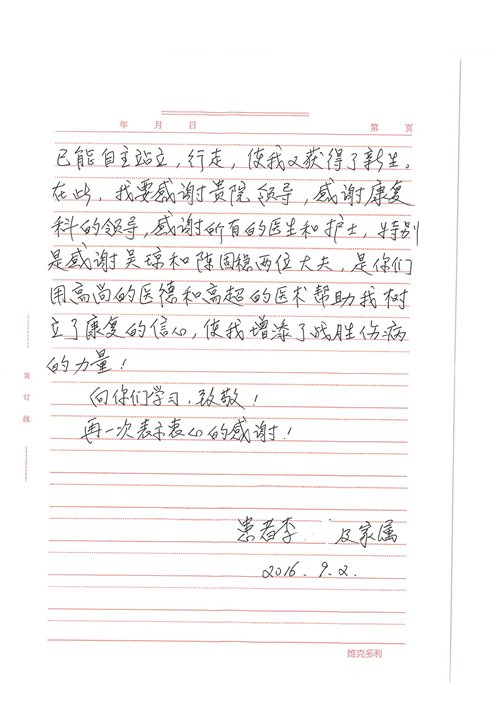 年 月 日 第 页
已能自主站立，行走，使我又获得了新生。
在此，我要感谢贵院领导，感谢康复
科的领导，感谢所有的医生和护士，特别
是感谢吴琼和陈固稳两位大夫，是你们
用高尚的医德和高超的医术帮助我树
立了康复的信心，使我增添了战胜伤病
的力量！
向你们学习，致敬！
再一次表示衷心的感谢！
患者李 及家属
2016.9.2.
装
订
线
维克多利